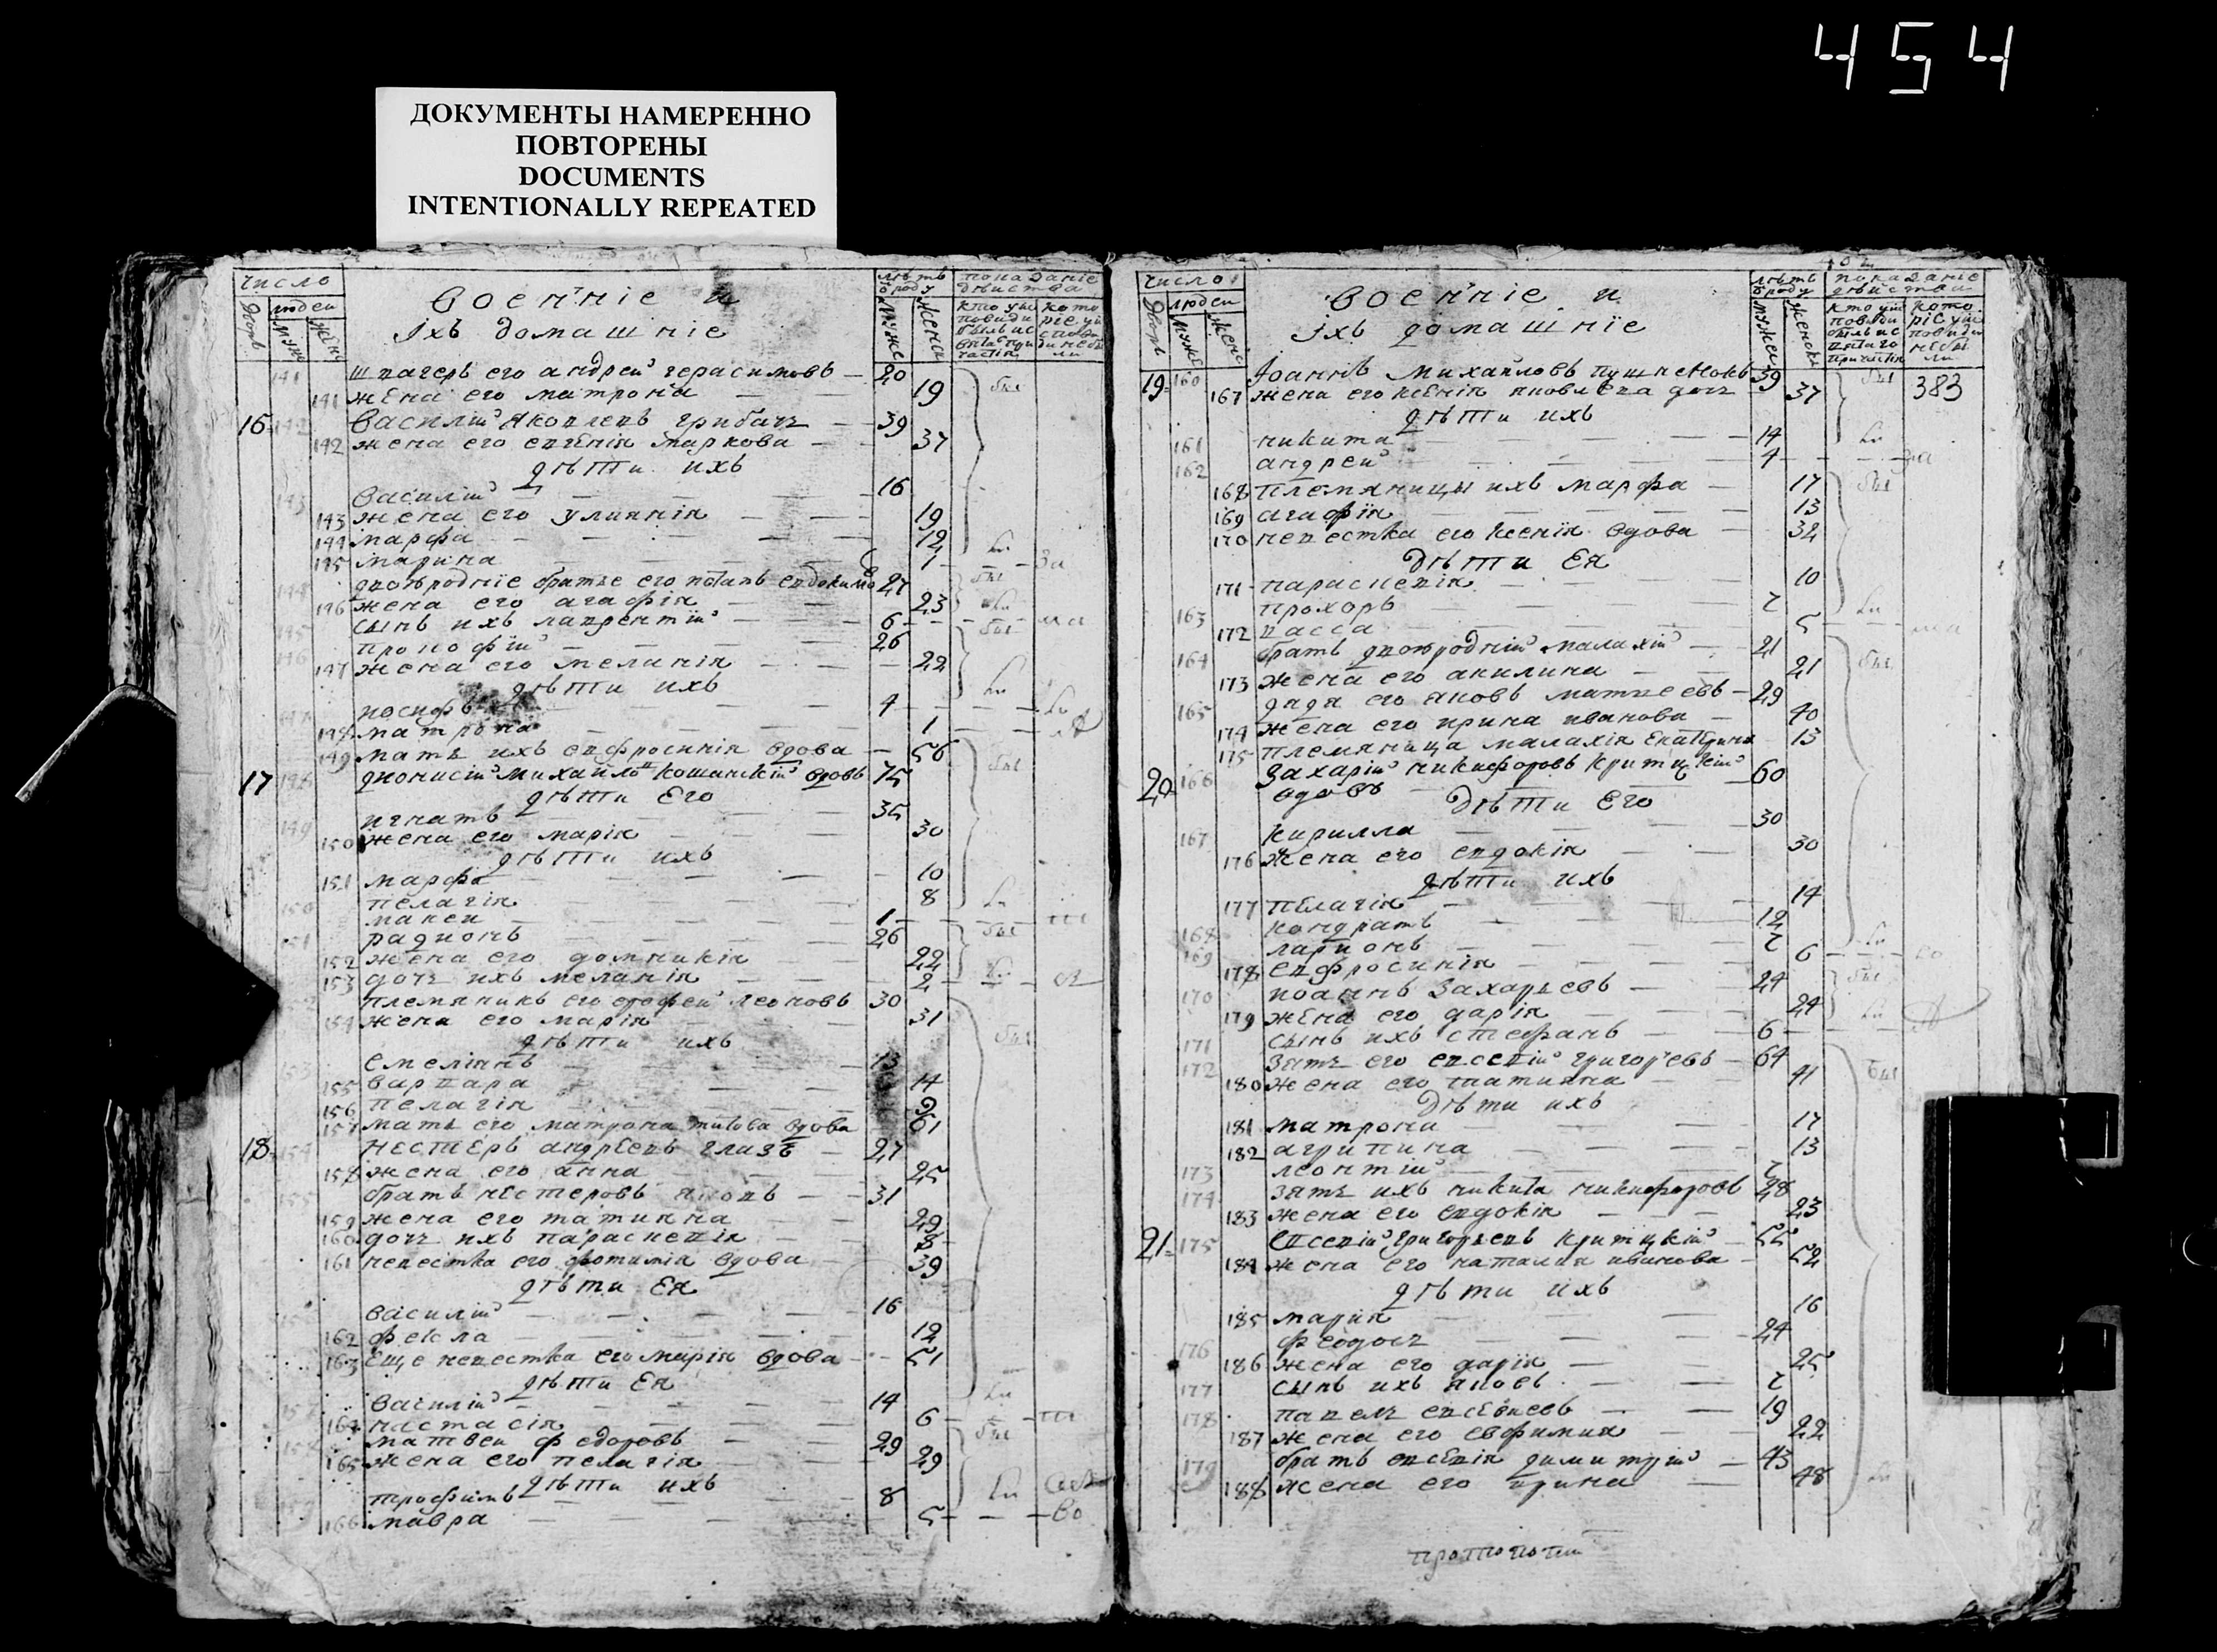 454
ДОКУМЕНТЫ НАМЕРЕННО
ПОВТОРЕНЫ
DOCUMENTS
INTENTIONALLY REPEATED
число
людеи
военніе и
Іхъ домашніе
141 швагеръ его андрей герасимовъ 20
141 жена его матрона 19
16 142 Василій Яковлевъ грибачъ 39
142 жена его евгенія маркова 37
дѣти ихъ
143 василій 16
143 жена его улиянія 19
144 марфа 12
145 марина 1
двоюродніе братье его потапъ евдокимо 27
146 жена его агафія 23
145 сынъ ихъ лаврентій 6
146 прокофій 26
147 жена его меланія 22
дѣти ихъ
147 иосифъ 4
148 матрона 1
149 мать ихъ евфросинія вдова 56
17 148 дионисій михайло кошанскій вдовъ 75
дѣти его
149 игнатъ 35
150 жена его марія 30
дѣти ихъ
151 марфа 10
пелагія 8
150 макеи 1
151 радионъ 26
152 жена его домникія 22
153 дочь ихъ меланія 2
племяникъ его ерофей леоновъ 30
154 жена его марія 31
дѣти ихъ
153 емеліянъ 13
155 варвара 14
156 пелагія 9
157 мать его матрона титова вдова 61
18 154 Нестеръ андреевъ глазъ 27
158 жена его анна 25
155 братъ нестеровъ яковъ 31
159 жена его татияна 29
160 дочь ихъ параскевія 8
161 невестка его фотинія вдова 39
дѣти ея
василій 16
162 фекла 12
163 еще невестка его марія вдова 51
дѣти ея
157 василій 14
164 настасія 6
158 матвеи федоровъ 29
165 жена его пелагія 29
дѣти ихъ
159 трофимъ 8
166 мавра 5
число
людеи
военніе и
Іхъ домашніе
19 160 Іоаннъ Михайловъ 39
383
167 жена его ксенія яковлева дочь 37
дѣти ихъ
161 никита 14
162 андрей 4
168 племяницы ихъ марфа 17
169 агафія 13
170 невестка его ксенія вдова 32
дѣти ея
171 параскевія 10
163 прохоръ 7
172 васса 5
164 братъ двоюродній малахій 21
173 жена его акилина 21
165 дядя его яковъ матвеевъ 29
174 жена его ирина иванова 40
175 племяница малахія екатерина 13
20 166 Захарій никифоровъ критцкій 60
вдовъ
дѣти его
167 кирилла 30
176 жена его евдокія 30
дѣти ихъ
177 пелагія 14
168 кондратъ 12
169 ларионъ 7
178 евфросинія 6
170 иоаннъ захарьевъ 24
179 жена его дарія 24
171 сынъ ихъ стефанъ 6
172 зять его евсевій григорьевъ 64
180 жена его татияна 41
дѣти ихъ
181 матрона 17
182 агрипина 13
173 леонтій 7
174 зять ихъ никита никифоровъ 28
183 жена его евдокія 23
21 175 Евсевій григорьевъ критцкій 55
184 жена его наталия иванова 52
дѣти ихъ
185 мария 16
176 феодосъ 24
186 жена его дарія 25
177 сынъ ихъ яковъ 7
178 павелъ евсевиевъ 19
187 жена его евфимия 22
179 братъ евсевія димитрій 43
188 жена его ирина 48
протопопъ